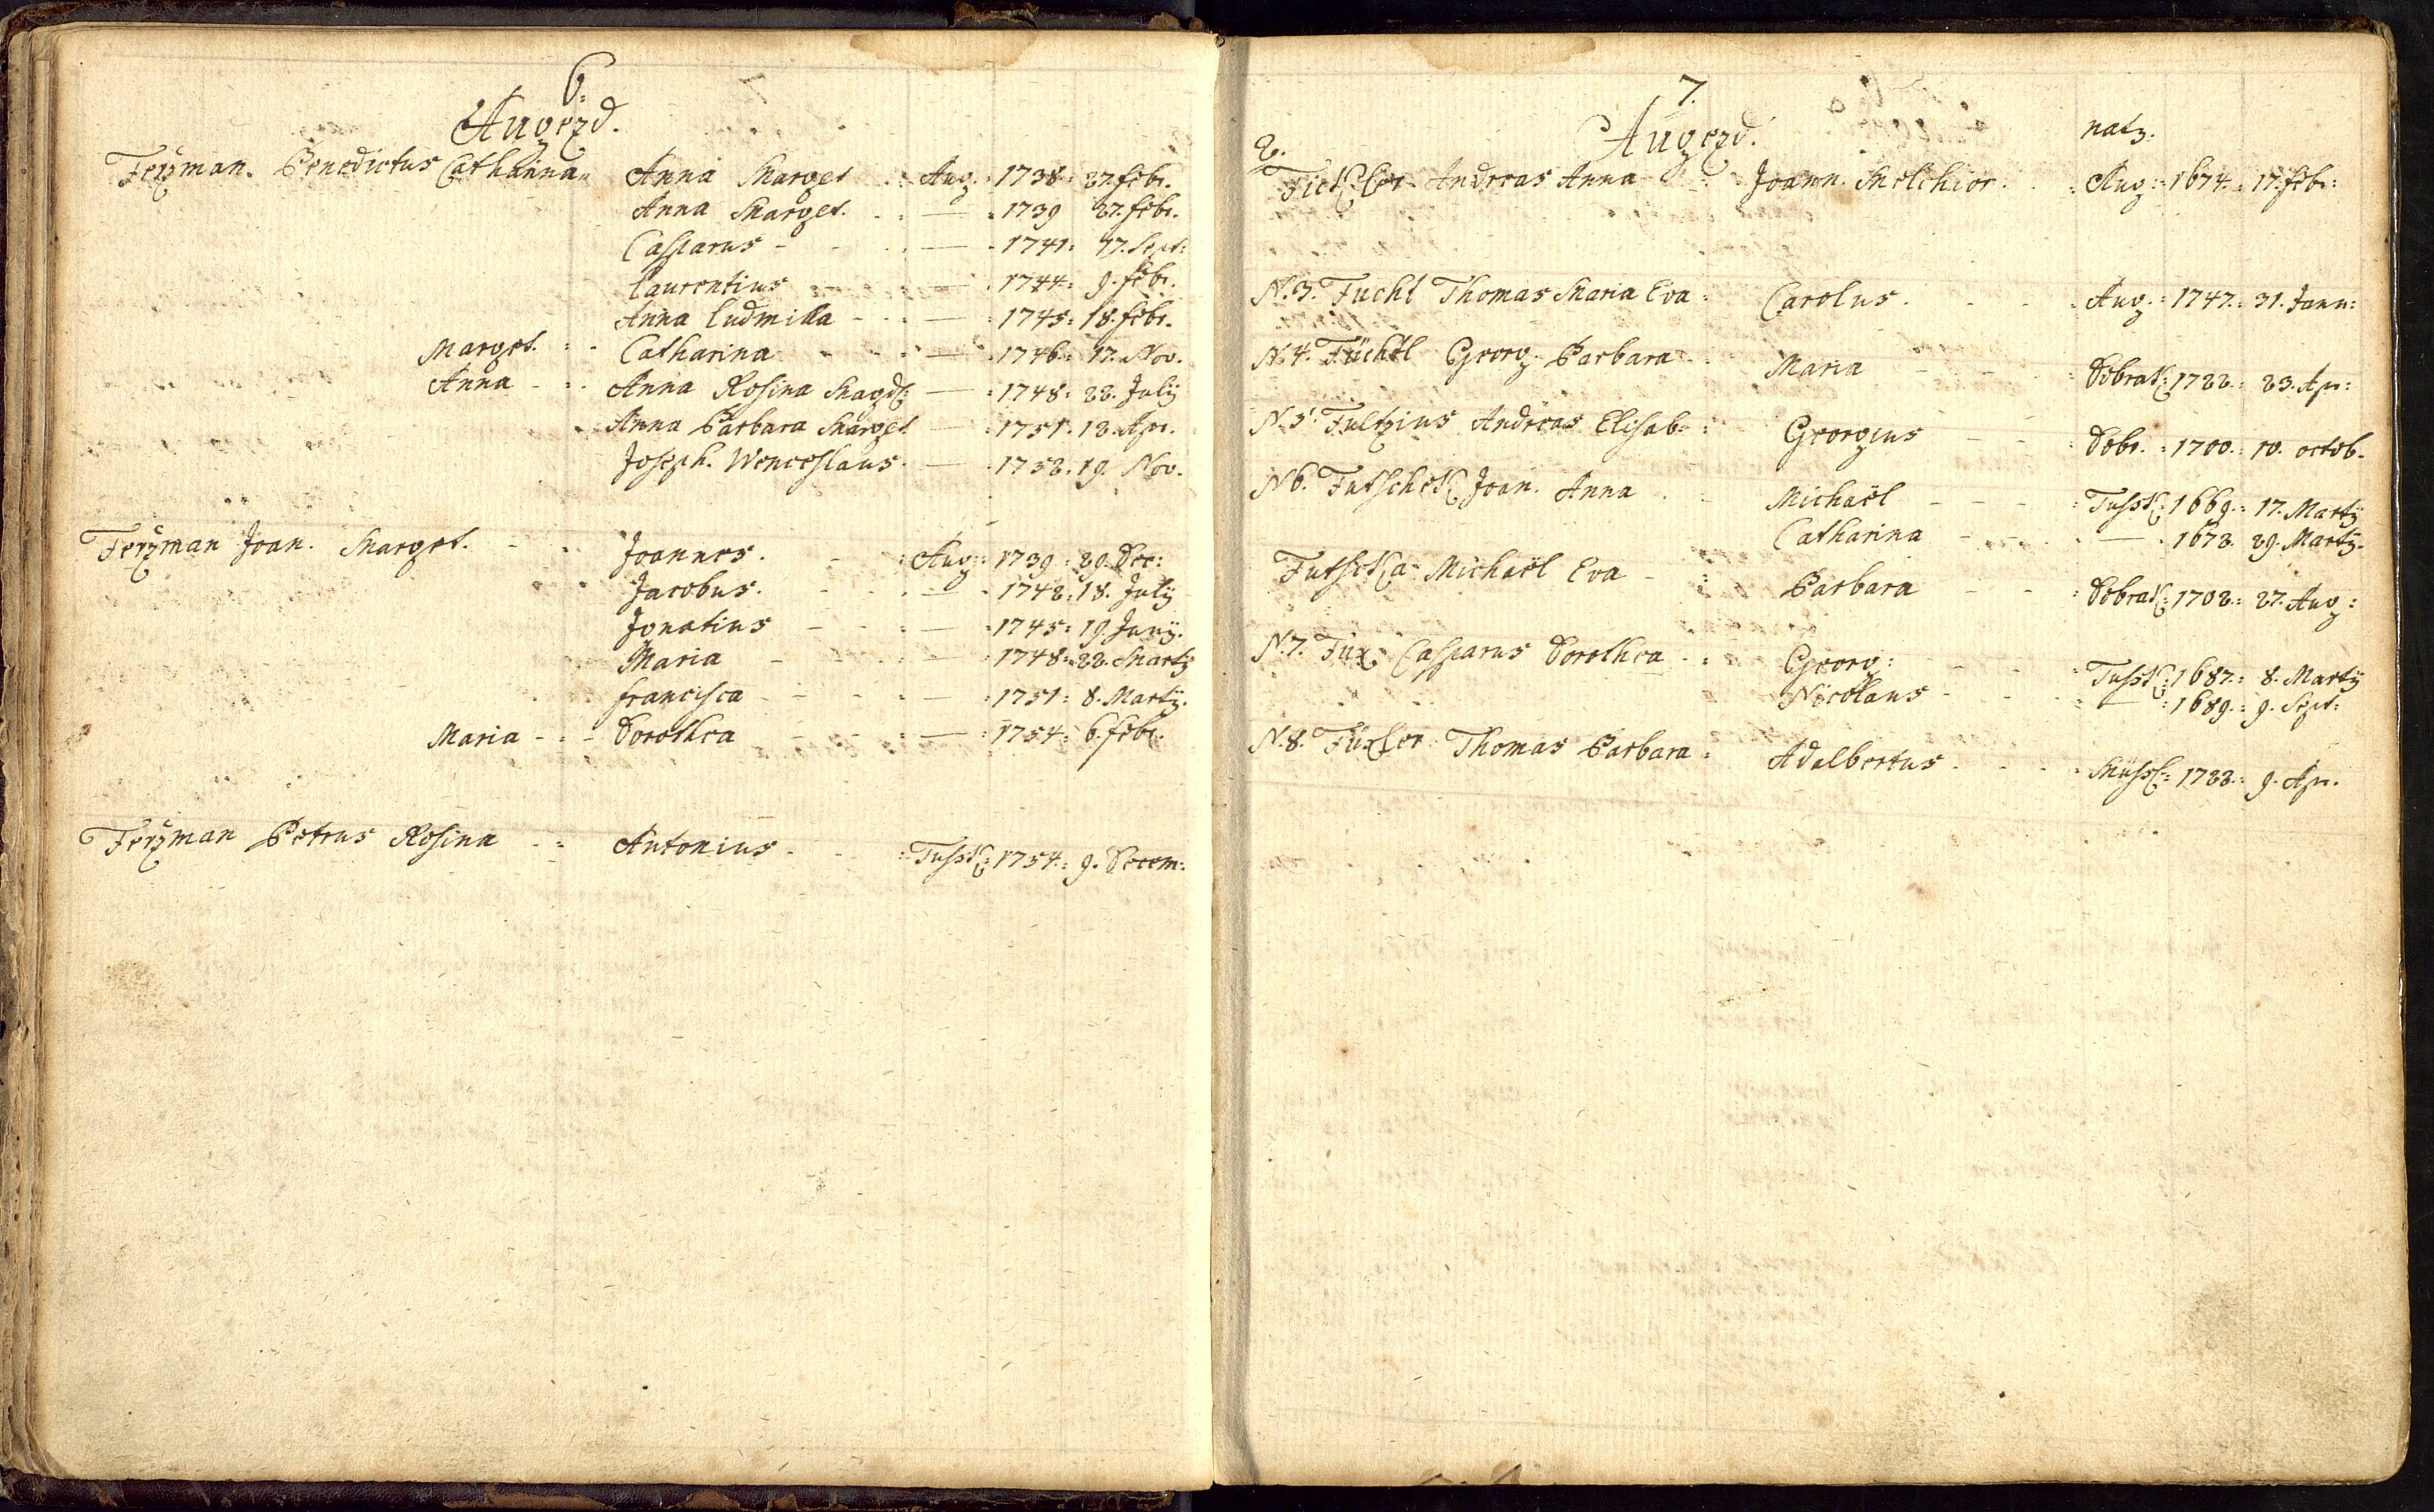 6.
Augezd.
Ferzman. Benedictus Catharina Anna Marget Aug. 1738. 27. febr.
Anna Marget. — 1739 27. febr.
Casparus — 1741. 17. Sept:
Laurentius — 1744. 9. febr.
Anna Ludmilla — 1745. 18. febr.
Marget. Catharina — 1746. 17. Nov.
Anna Anna Rosina Magd: — 1748. 22. July
Anna Barbara Marget — 1751. 12. Apr.
Joseph. Wenceslaus. — 1752. 19. Nov.
Ferzman Joan. Marget. Joannes. Aug: 1739. 29. Dec:
Jacobus. — 1742. 18. July
Ignatius — 1745. 19. Juny.
Maria — 1748. 22. Marty
Francisca — 1751. 8. Marty.
Maria Dorothea — 1754. 6. febr.
Ferzman Petrus Rosina Antonius Tussk: 1754. 9. Decem:
7.
Augezd.
natq.
2.
Andreas Anna Joann. Melchior. Aug: 1674. 17. febr:
N.3. Fuchl Thomas Maria Eva Carolus. Aug: 1747. 31. Janu:
N.4. Füchtl Georg. Barbara Maria Dobrak: 1722. 23. Apr:
N.5. Fultzius Andreas Elisab: Georgius Dobr. 1700. 10. octob.
N6. Futschek Joan. Anna Michaël Tussk: 1669. 17. Marty
Catharina — 1672. 29. Marty.
Futschka Michaël Eva Barbara Dobrak: 1702. 27. Aug:
N.7. Fux Casparus Dorothea Georg: Tussk: 1687. 8. Marty
Nicolaus — 1689. 9. Sept:
N.8. Füxser Thomas Barbara Adalbertus 1722. 9. Apr.